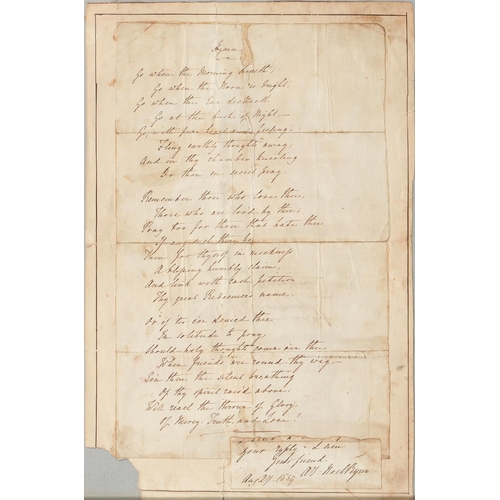 Hymn
Go when the Morning shineth,
Go when the Noon is bright,
Go when the Eve declineth
Go at the hush of Night—
Go, with pure and feeling,
Fling earthly thoughts away,
And in thy chamber kneeling
Do thou in secret pray.
Remember those who love thee,
Those who are lov'd by thee,
Pray too for those that hate thee
If any such there be,
Then for thyself in meekness
A blessing humbly claim,
And link with each petition
Thy great Redeemer's name.
Or if tis e'er denied thee
In solitude to pray,
Should holy thoughts come o'er thee
When friends are round thy way,—
Even then the silent breathing
Of thy spirit rais'd above
Will reach the throne of Glory
Of Mercy, Truth, and Love!
Your
Your friend
Noel Byron
Aug 27